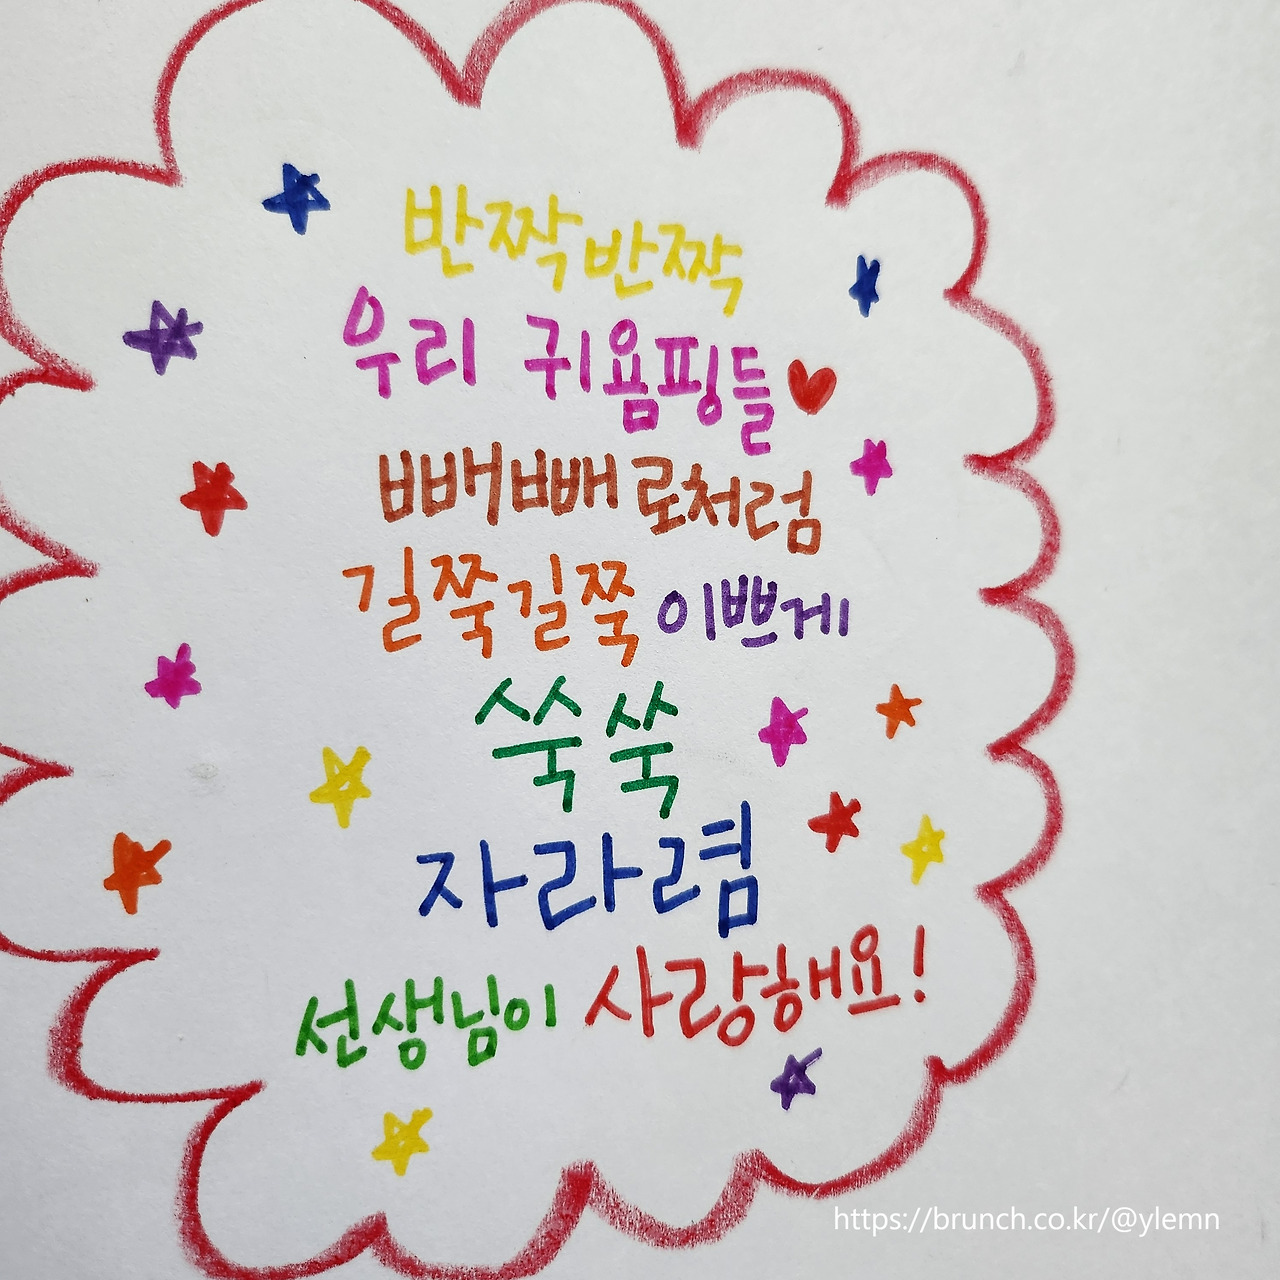 반짝반짝
우리 귀욤핑들
빼빼로처럼
길쭉길쭉 이쁘게
쑥쑥
자라렴
선생님이 사랑해요!
https://brunch.co.kr/@ylemn